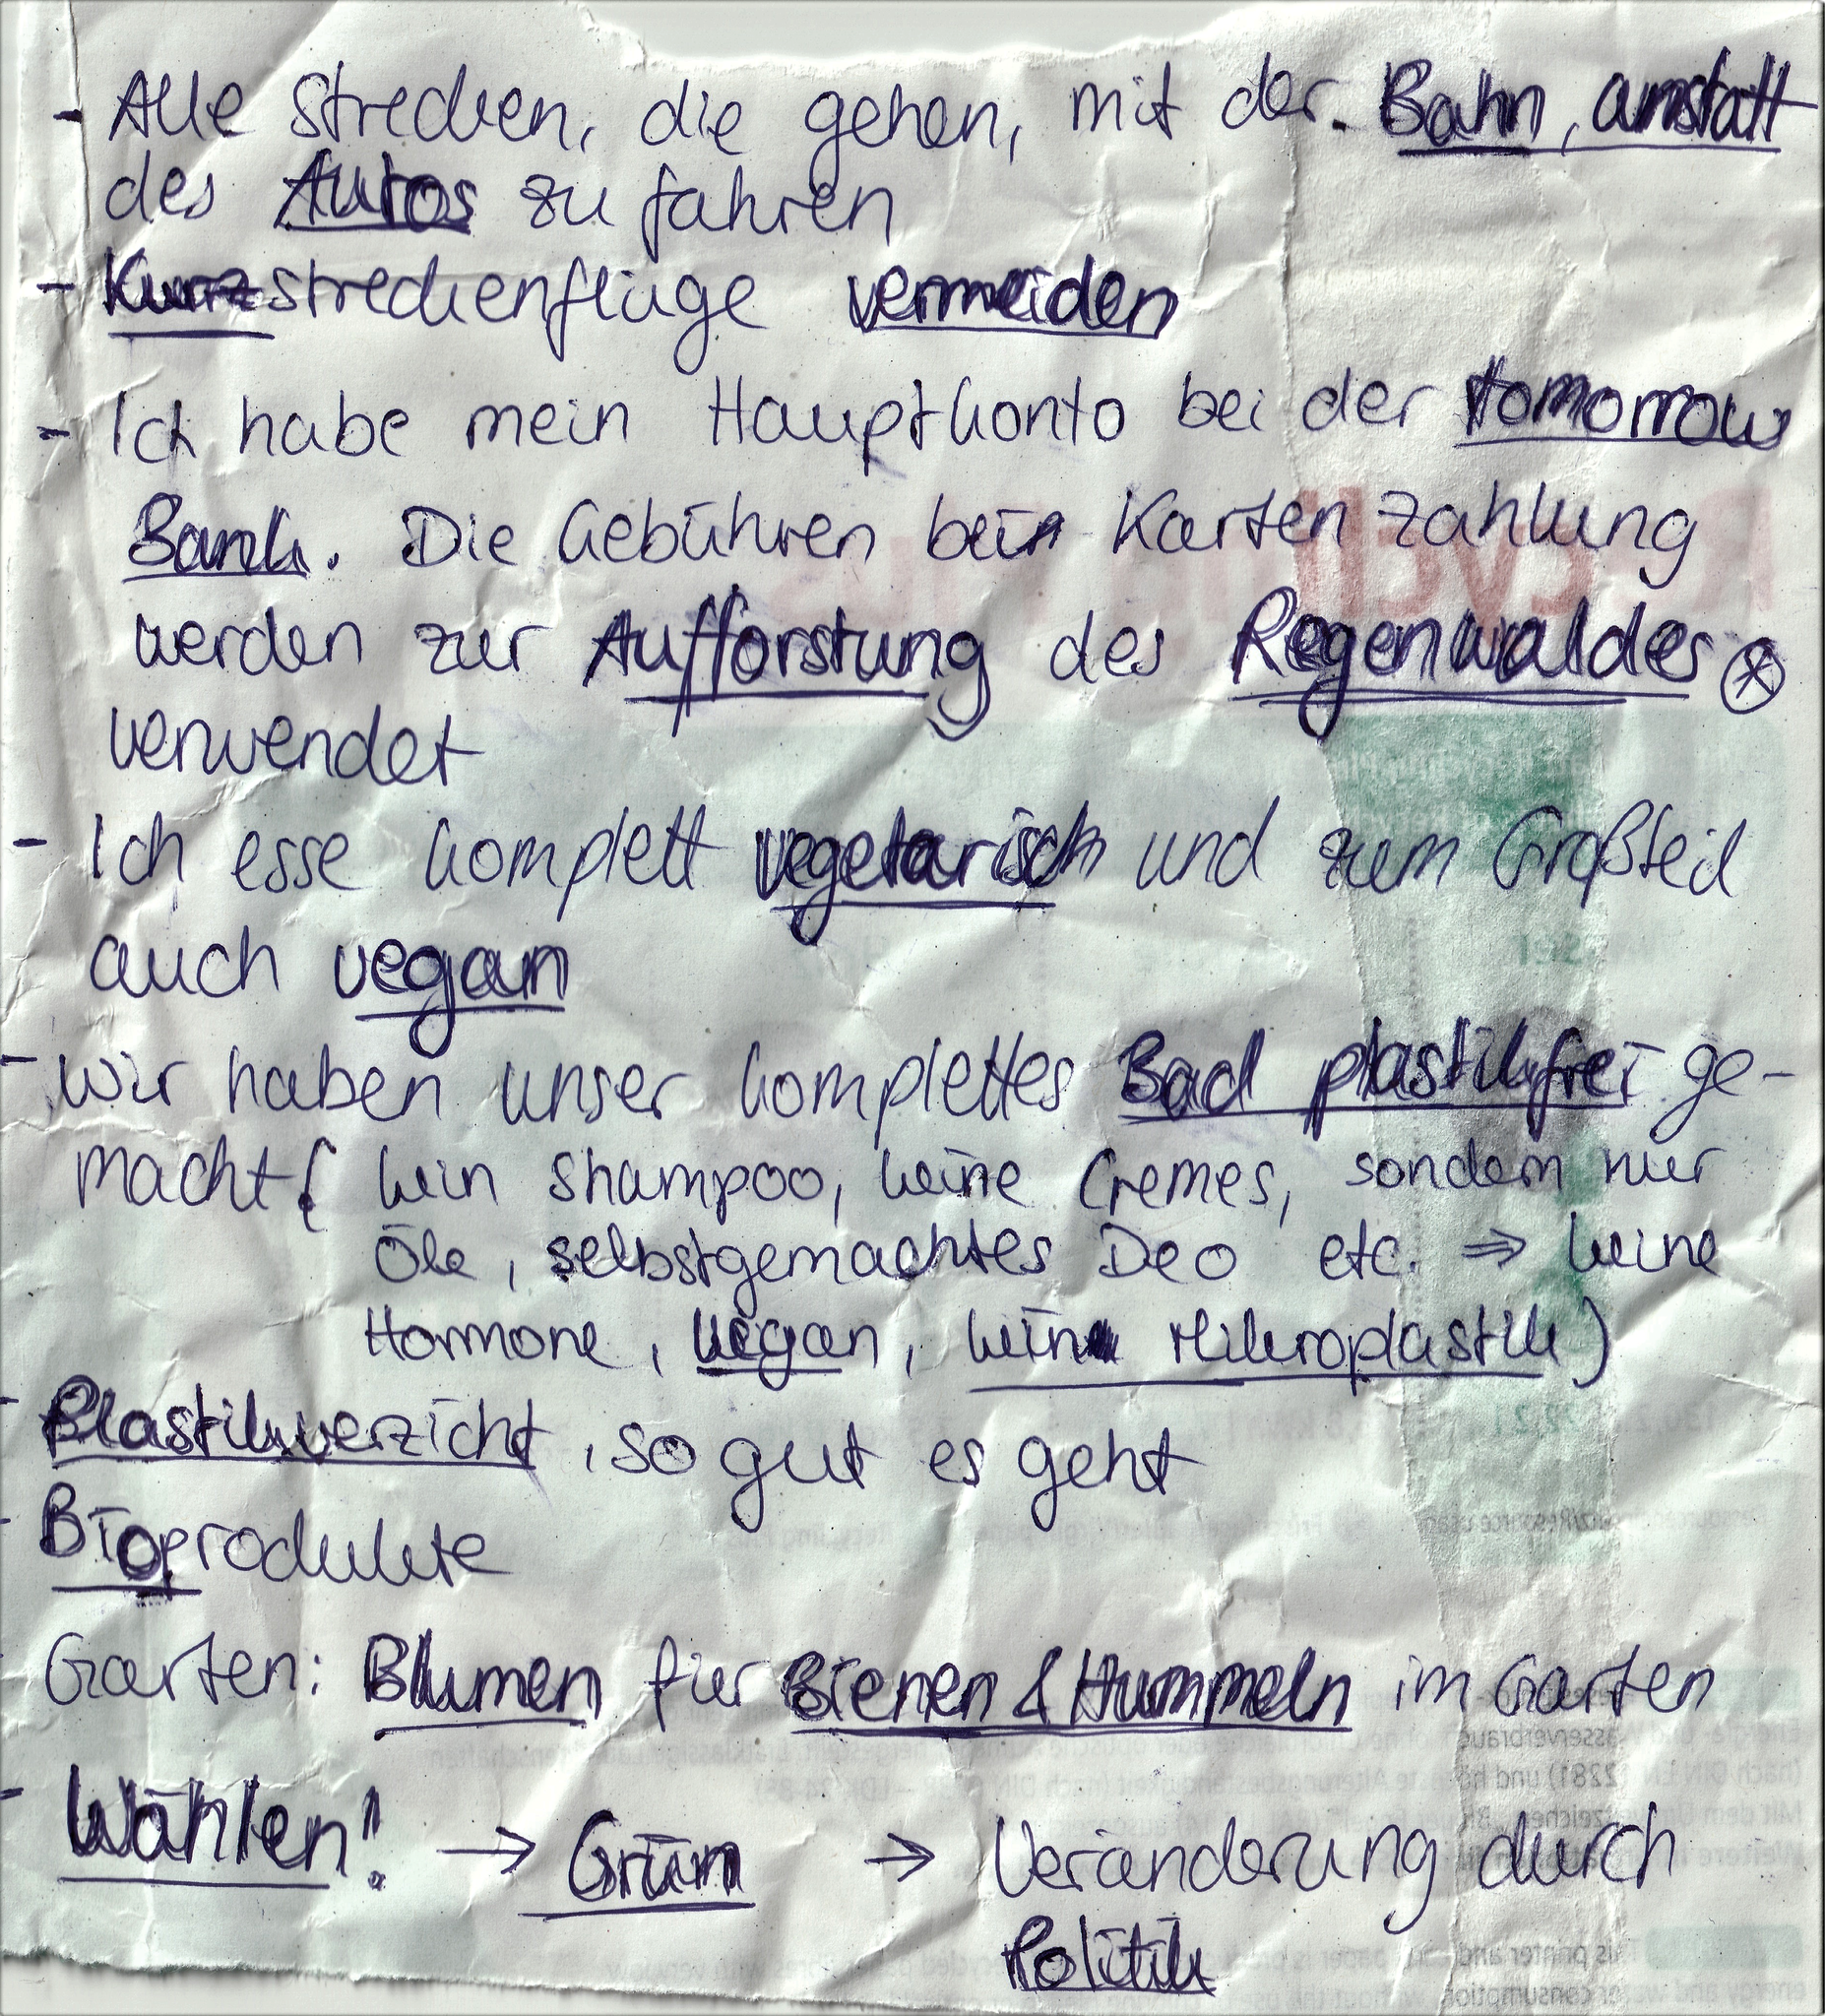 - Alle Strecken, die gehen, mit der Bahn, anstatt
des Autos zu fahren
- Kurzstreckenflüge vermeiden
- Ich habe mein Hauptkonto bei der tomorrow
Bank. Die Gebühren bein Kartenzahlung
werden zur Aufforstung des Regenwaldes ⊛
verwendet
- Ich esse komplett vegetarisch und zum Großteil
auch vegan
- Wir haben unser komplettes Bad plastikfrei ge-
macht ( kein Shampoo, keine Cremes, sondern nur
Öle, selbstgemachtes Deo etc. ⇒ keine
Hormone, vegan, kein Mikroplastik)
- Plastikverzicht, so gut es geht
- Bioprodukte
Garten: Blumen für Bienen & Hummeln im Garten
- Wählen! → Grün → Veränderung durch
Politik